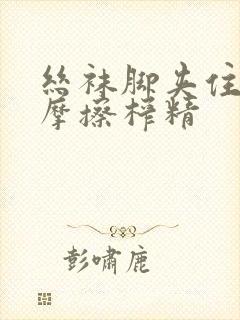 丝袜脚夹住
摩擦榨精
彭啸鹿